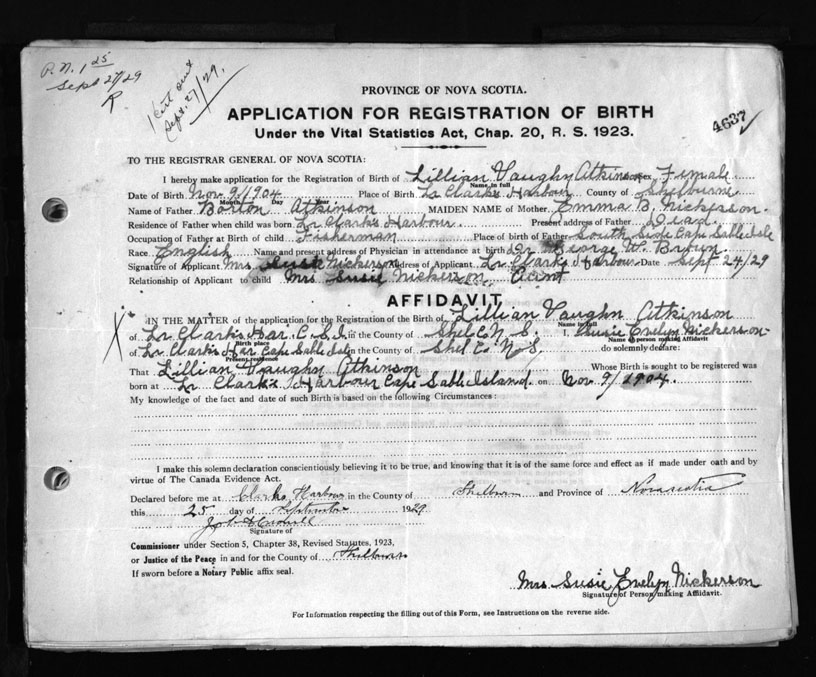 P.N. 1 25
Sept 27/29
R
1 Cert out
Sept. 27/29.
PROVINCE OF NOVA SCOTIA.
APPLICATION FOR REGISTRATION OF BIRTH
Under the Vital Statistics Act, Chap. 20, R. S. 1923.
4637
TO THE REGISTRAR GENERAL OF NOVA SCOTIA:
I hereby make application for the Registration of Birth of Lillian Vaughn Atkinson Sex Female
Name in full
Date of Birth Nov 9/1904 Place of Birth Lr Clarks Harbour County of Shelburne
Month Day Year
Name of Father Atkinson MAIDEN NAME of Mother Emma B. Nickerson.
Residence of Father when child was born Lr Clark's Harbour Present address of Father Dead.
Occupation of Father at Birth of child Fisherman Place of birth of Father South Side Cape Sable Isle
Race English Name and present address of Physician in attendance at birth Dr George W. Brown.
Signature of Applicant Mrs Susie Nickerson Address of Applicant Lr Clark's Harbour Date Sept 24/29
Relationship of Applicant to child Mrs Susie Nickerson. Aunt
AFFIDAVIT
IN THE MATTER of the application for the Registration of the Birth of Lillian Vaughn Atkinson
Name in full
of Lr Clark's Har. C. S. I. in the County of Shel Co N. S. I, Susie Evelyn Nickerson
Birth place Name of person making Affidavit
of Lr Clark's Har Cape Sable Isle in the County of Shel Co N. S. do solemnly declare:
Present residence
That Lillian Vaughn Atkinson Whose Birth is sought to be registered was
born at Lr Clark's Harbour Cape Sable Island on Nov 9/1904.
My knowledge of the fact and date of such Birth is based on the following Circumstances:
I make this solemn declaration conscientiously believing it to be true, and knowing that it is of the same force and effect as if made under oath and by
virtue of The Canada Evidence Act.
Declared before me at Clarks Harbour in the County of Shelburne and Province of Nova Scotia
this 25 day of September 1929
Signature of
Commissioner under Section 5, Chapter 38, Revised Statutes, 1923,
or Justice of the Peace in and for the County of Shelburne
If sworn before a Notary Public affix seal.
Mrs. Susie Evelyn Nickerson
Signature of Person making Affidavit.
For Information respecting the filling out of this Form, see Instructions on the reverse side.